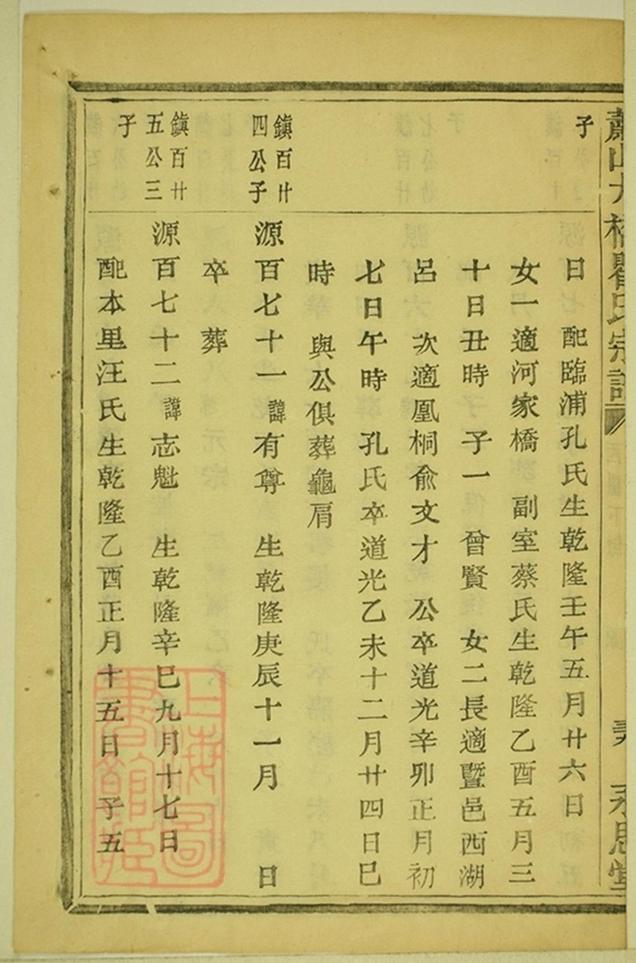 蕭山大橋瞿氏宗譜
承恩堂
子
日 配臨浦孔氏生乾隆壬午五月廿六日
女一適河家橋 副室蔡氏生乾隆乙酉五月三
十日丑時 子一 曾賢 女二長適暨邑西湖
呂 次適鳳桐俞文才 公卒道光辛卯正月初
七日午時 孔氏卒道光乙未十二月廿四日巳
時 與公俱葬龜肩
鎮百廿
四公子
源百七十一諱有尊 生乾隆庚辰十一月 日
卒 葬
鎮百廿
五公三
子
源百七十二諱志魁 生乾隆辛巳九月十七日
配本里汪氏生乾隆乙酉正月十五日 子五
上海圖
書館藏